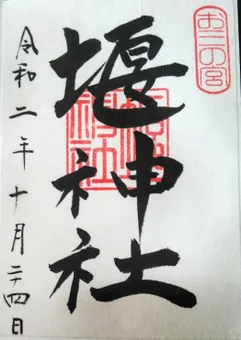 お二の宮
堰神社
令和二年十月二十四日